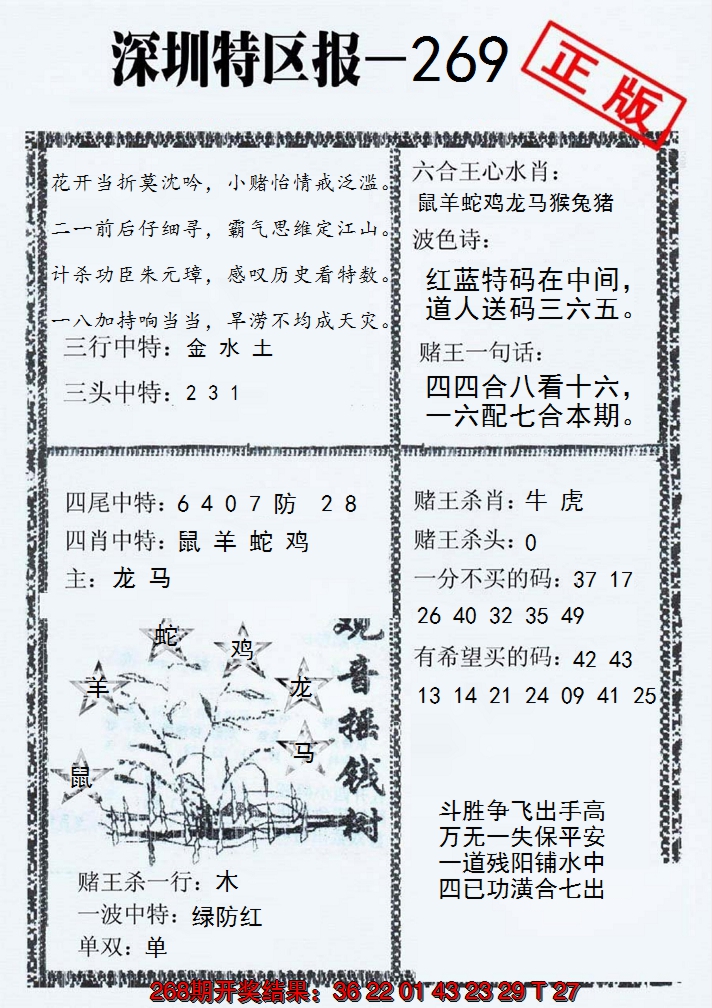 深圳特区报—269
正版
花开当折莫沈吟，小赌怡情戒泛滥。
二一前后仔细寻，霸气思维定江山。
计杀功臣朱元璋，感叹历史看特数。
一八加持响当当，旱涝不均成天灾。
三行中特：金 水 土
三头中特：2 3 1
六合王心水肖：
鼠羊蛇鸡龙马猴兔猪
波色诗：
红蓝特码在中间，
道人送码三六五。
赌王一句话：
四四合八看十六，
一六配七合本期。
四尾中特：6 4 0 7 防 2 8
四肖中特：鼠 羊 蛇 鸡
主：龙 马
蛇
鸡
羊
龙
马
鼠
观音摇钱树
赌王杀一行：木
一波中特：绿防红
单双：单
赌王杀肖：牛 虎
赌王杀头：0
一分不买的码：37 17
26 40 32 35 49
有希望买的码：42 43
13 14 21 24 09 41 25
斗胜争飞出手高
万无一失保平安
一道残阳铺水中
四已功潢合七出
268期开奖结果：36 22 01 43 23 29 T 27